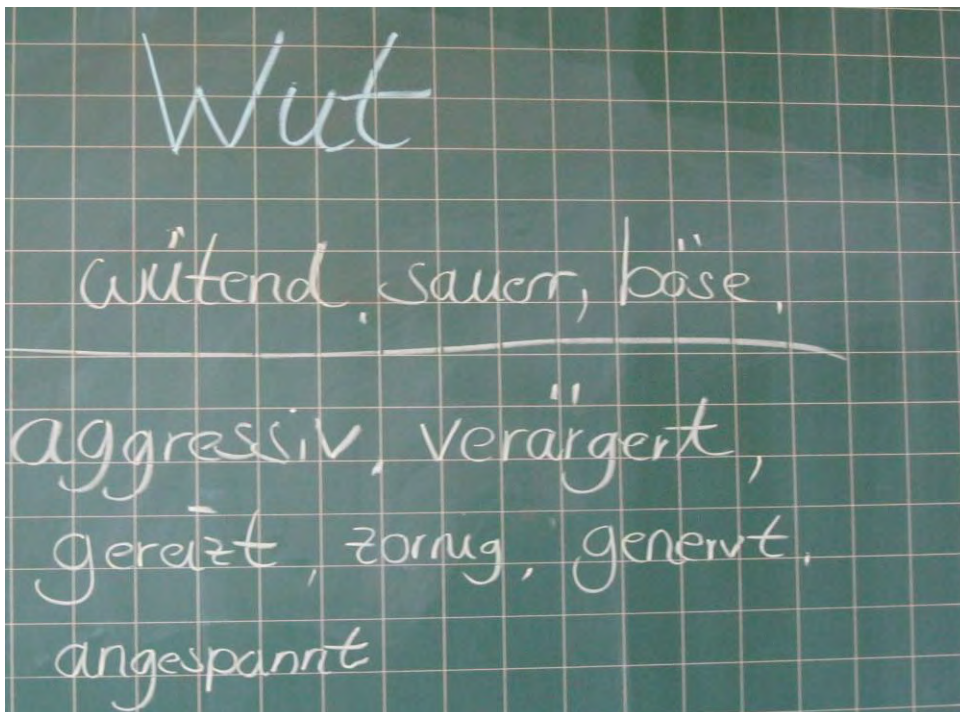 Wut
wütend, sauer, böse,
aggressiv, verärgert,
gereizt, zornig, genervt,
angespannt